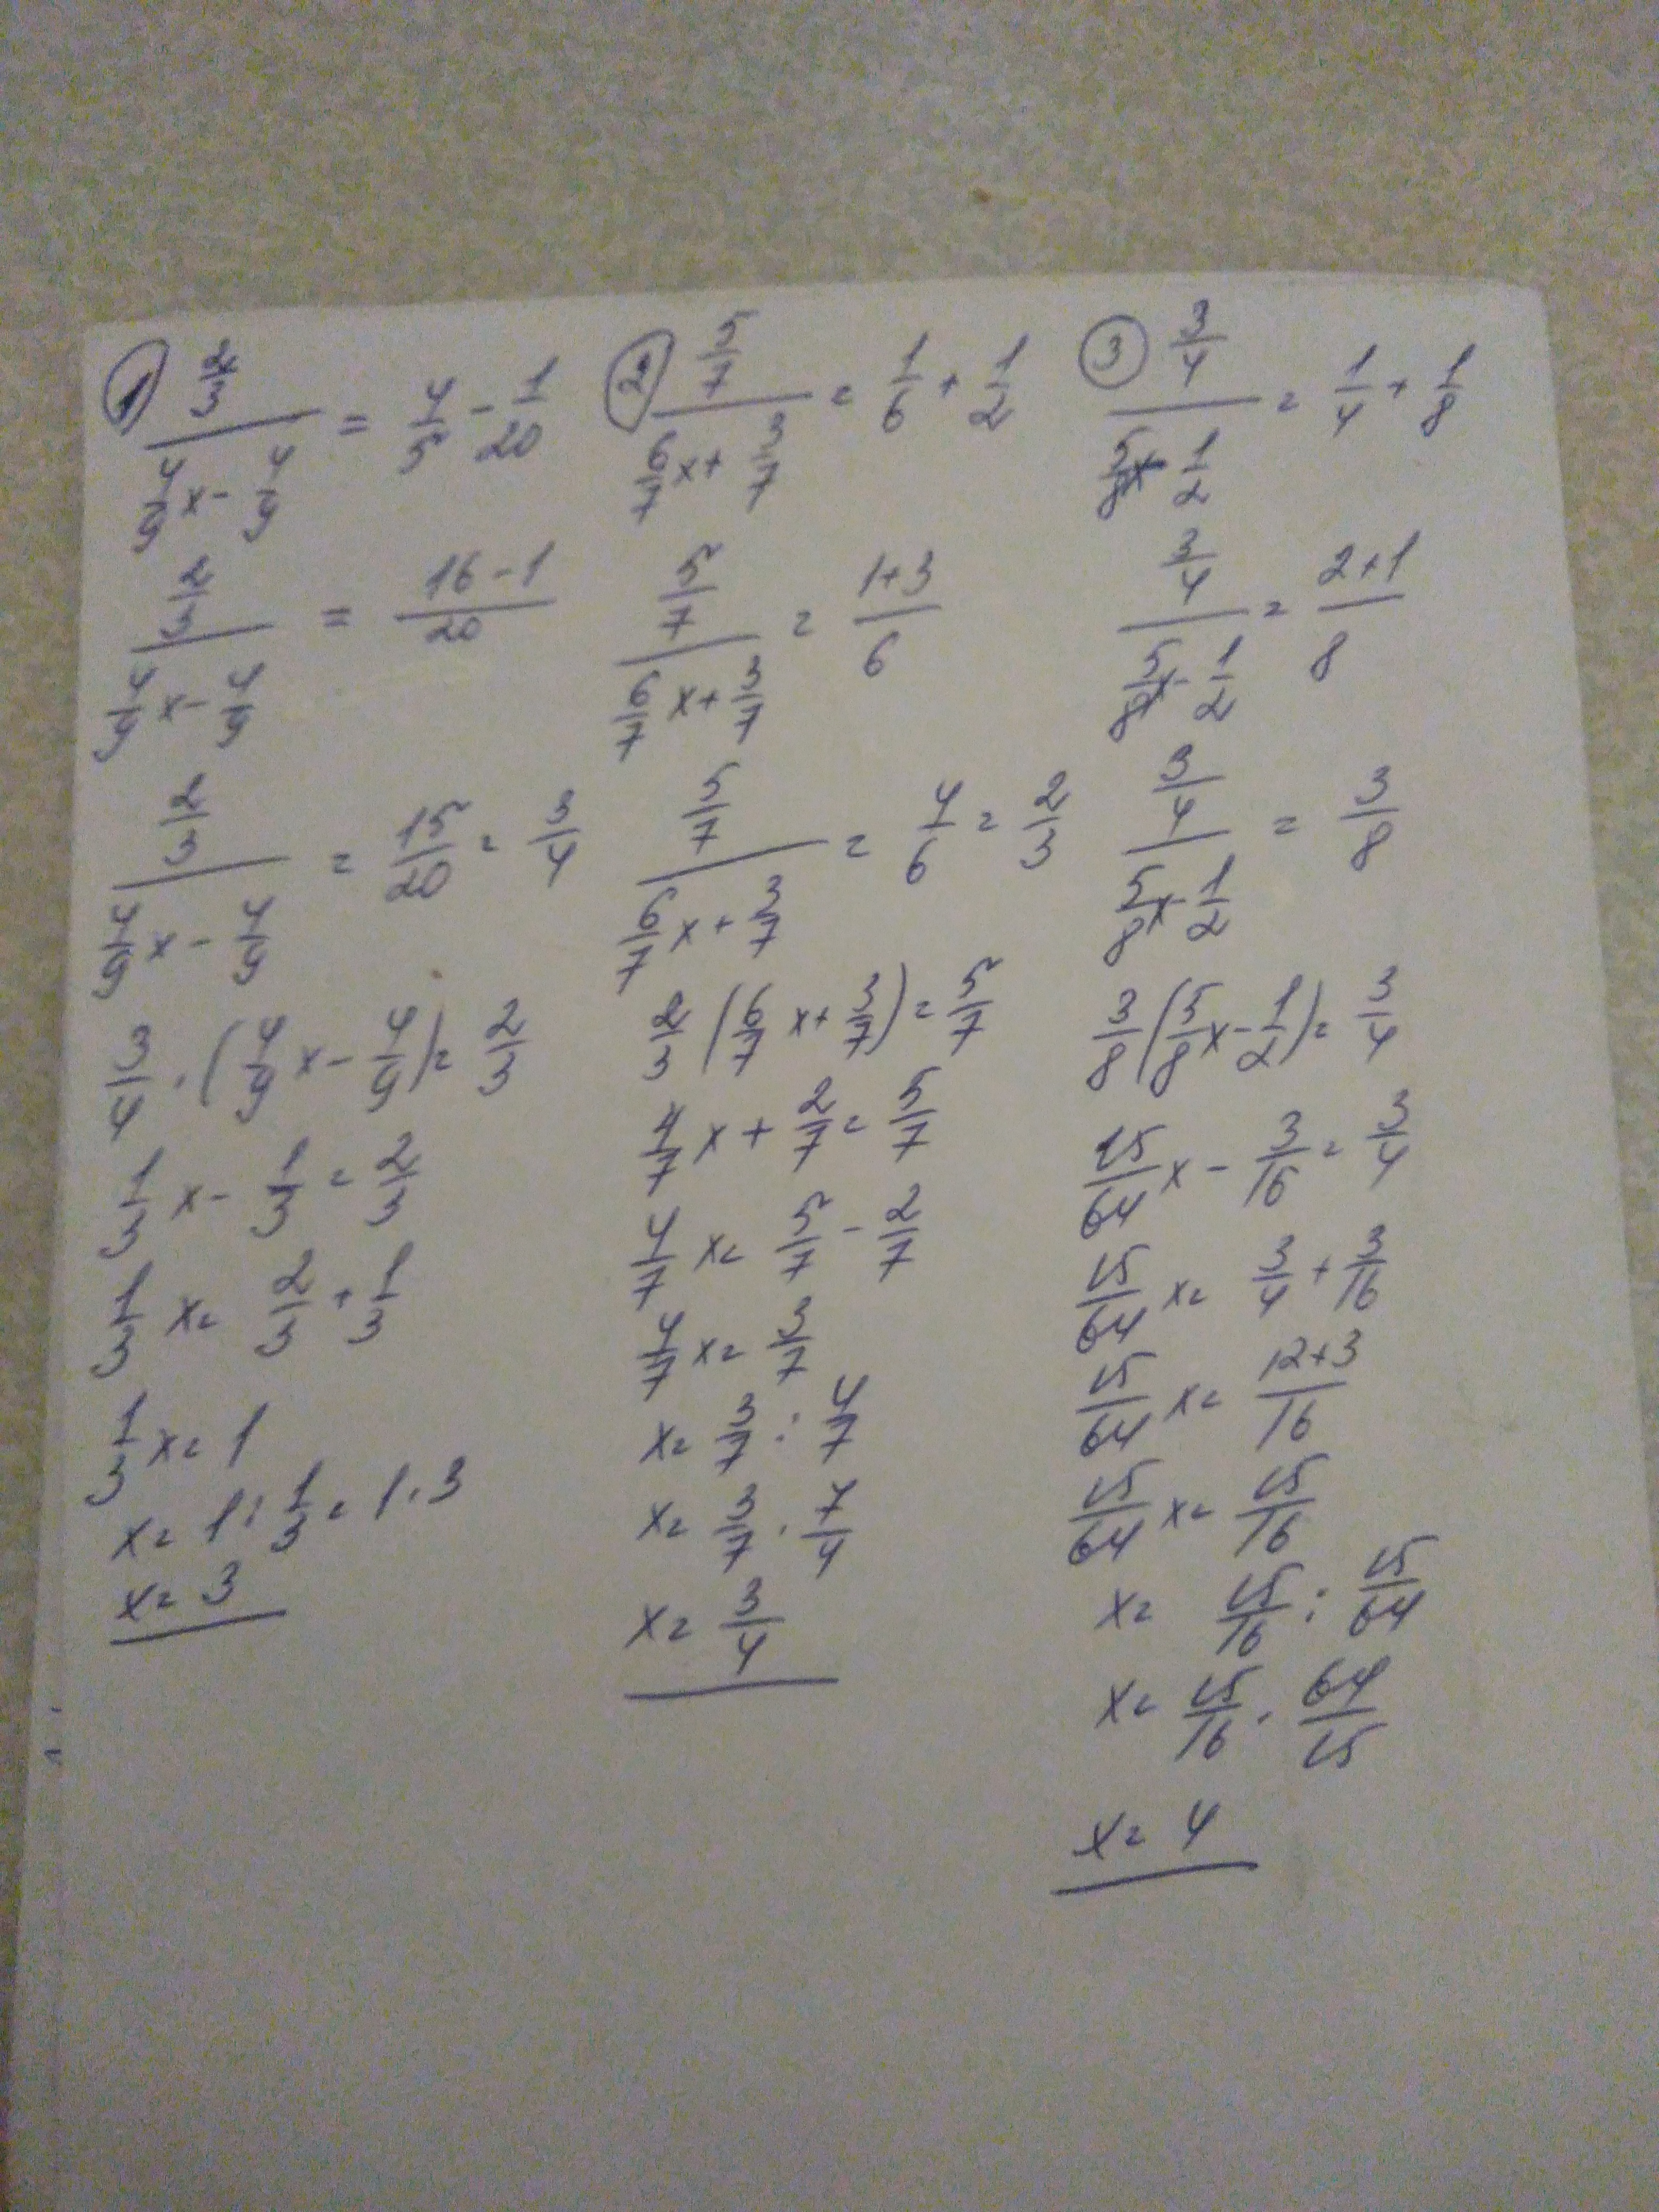 ① (2/3)/(4/9 x - 4/9) = 4/5 - 1/20
(2/3)/(4/9 x - 4/9) = (16-1)/20
(2/3)/(4/9 x - 4/9) = 15/20 = 3/4
3/4 · (4/9 x - 4/9) = 2/3
1/3 x - 1/3 = 2/3
1/3 x = 2/3 + 1/3
1/3 x = 1
x = 1 : 1/3 = 1 · 3
x = 3
② (5/7)/(6/7 x + 3/7) = 1/6 + 1/2
(5/7)/(6/7 x + 3/7) = (1+3)/6
(5/7)/(6/7 x + 3/7) = 4/6 = 2/3
2/3 (6/7 x + 3/7) = 5/7
4/7 x + 2/7 = 5/7
4/7 x = 5/7 - 2/7
4/7 x = 3/7
x = 3/7 : 4/7
x = 3/7 · 7/4
x = 3/4
③ (3/4)/(5/8 x - 1/2) = 1/4 + 1/8
(3/4)/(5/8 x - 1/2) = (2+1)/8
(3/4)/(5/8 x - 1/2) = 3/8
3/8 (5/8 x - 1/2) = 3/4
15/64 x - 3/16 = 3/4
15/64 x = 3/4 + 3/16
15/64 x = (12+3)/16
15/64 x = 15/16
x = 15/16 : 15/64
x = 15/16 · 64/15
x = 4